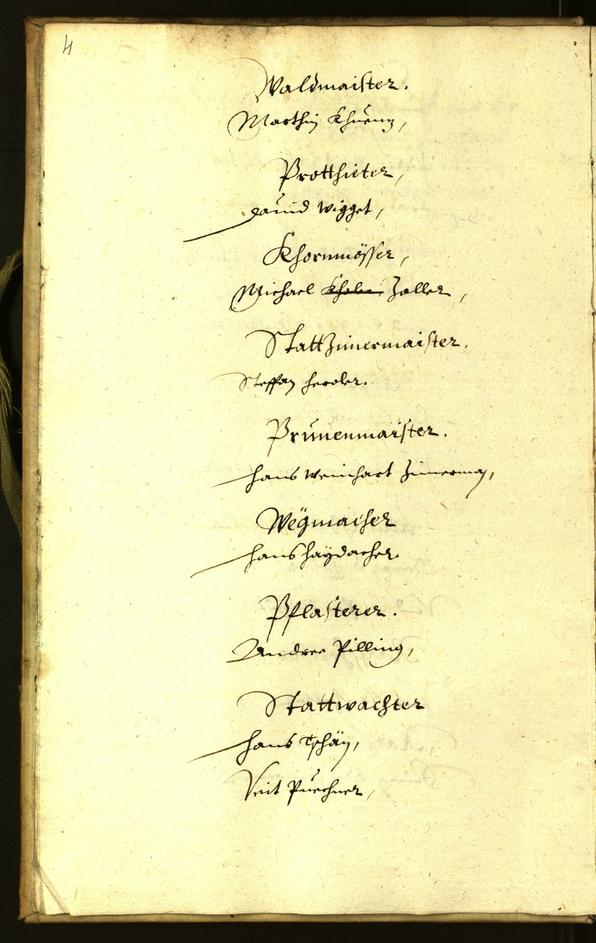 4
Waldmaister.
Marthin Khuenz,
Protthieter,
Dauid Wigget,
Khornmösser,
Michael Zoller,
Stattzimermaister.
Steffan heroler.
Prunenmaister.
hans Weinhart Zimerman,
Wegmacher
hans haydacher.
Pflasterer.
Andree Pilling,
Stattwachter
hans Tschän,
Veit Puechner,